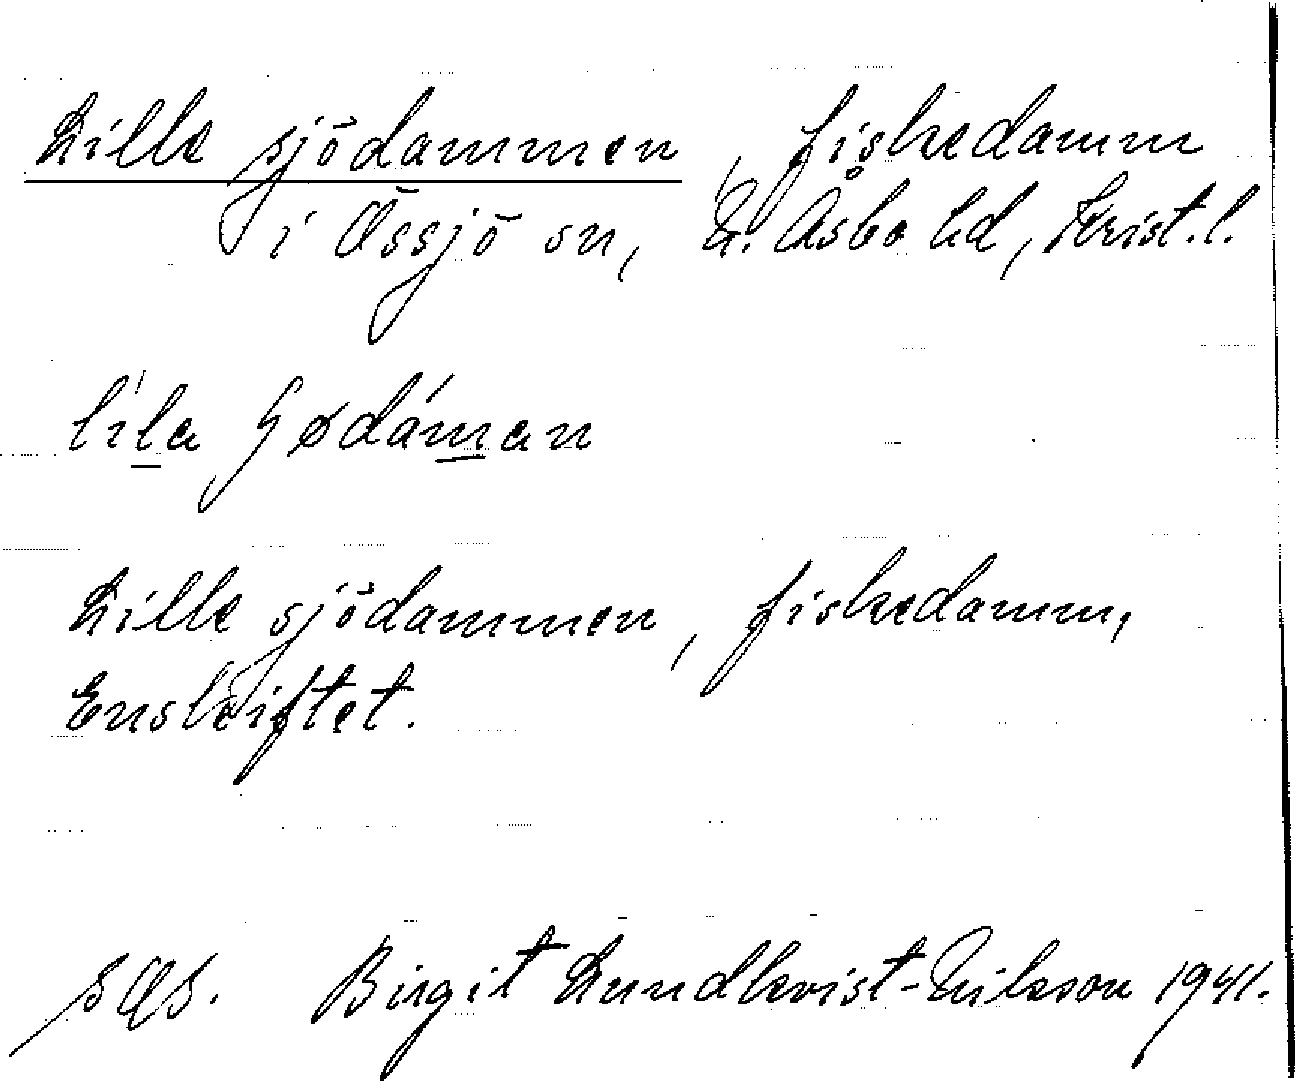 Lille sjödammen, fiskedamm
i Össjö sn, N. Åsbo hd, Krist. l.
lila ɧødáman
Lille sjödammen, fiskedamm,
Enskiftet.
Birgit Lundkvist-Nilsson 1941.